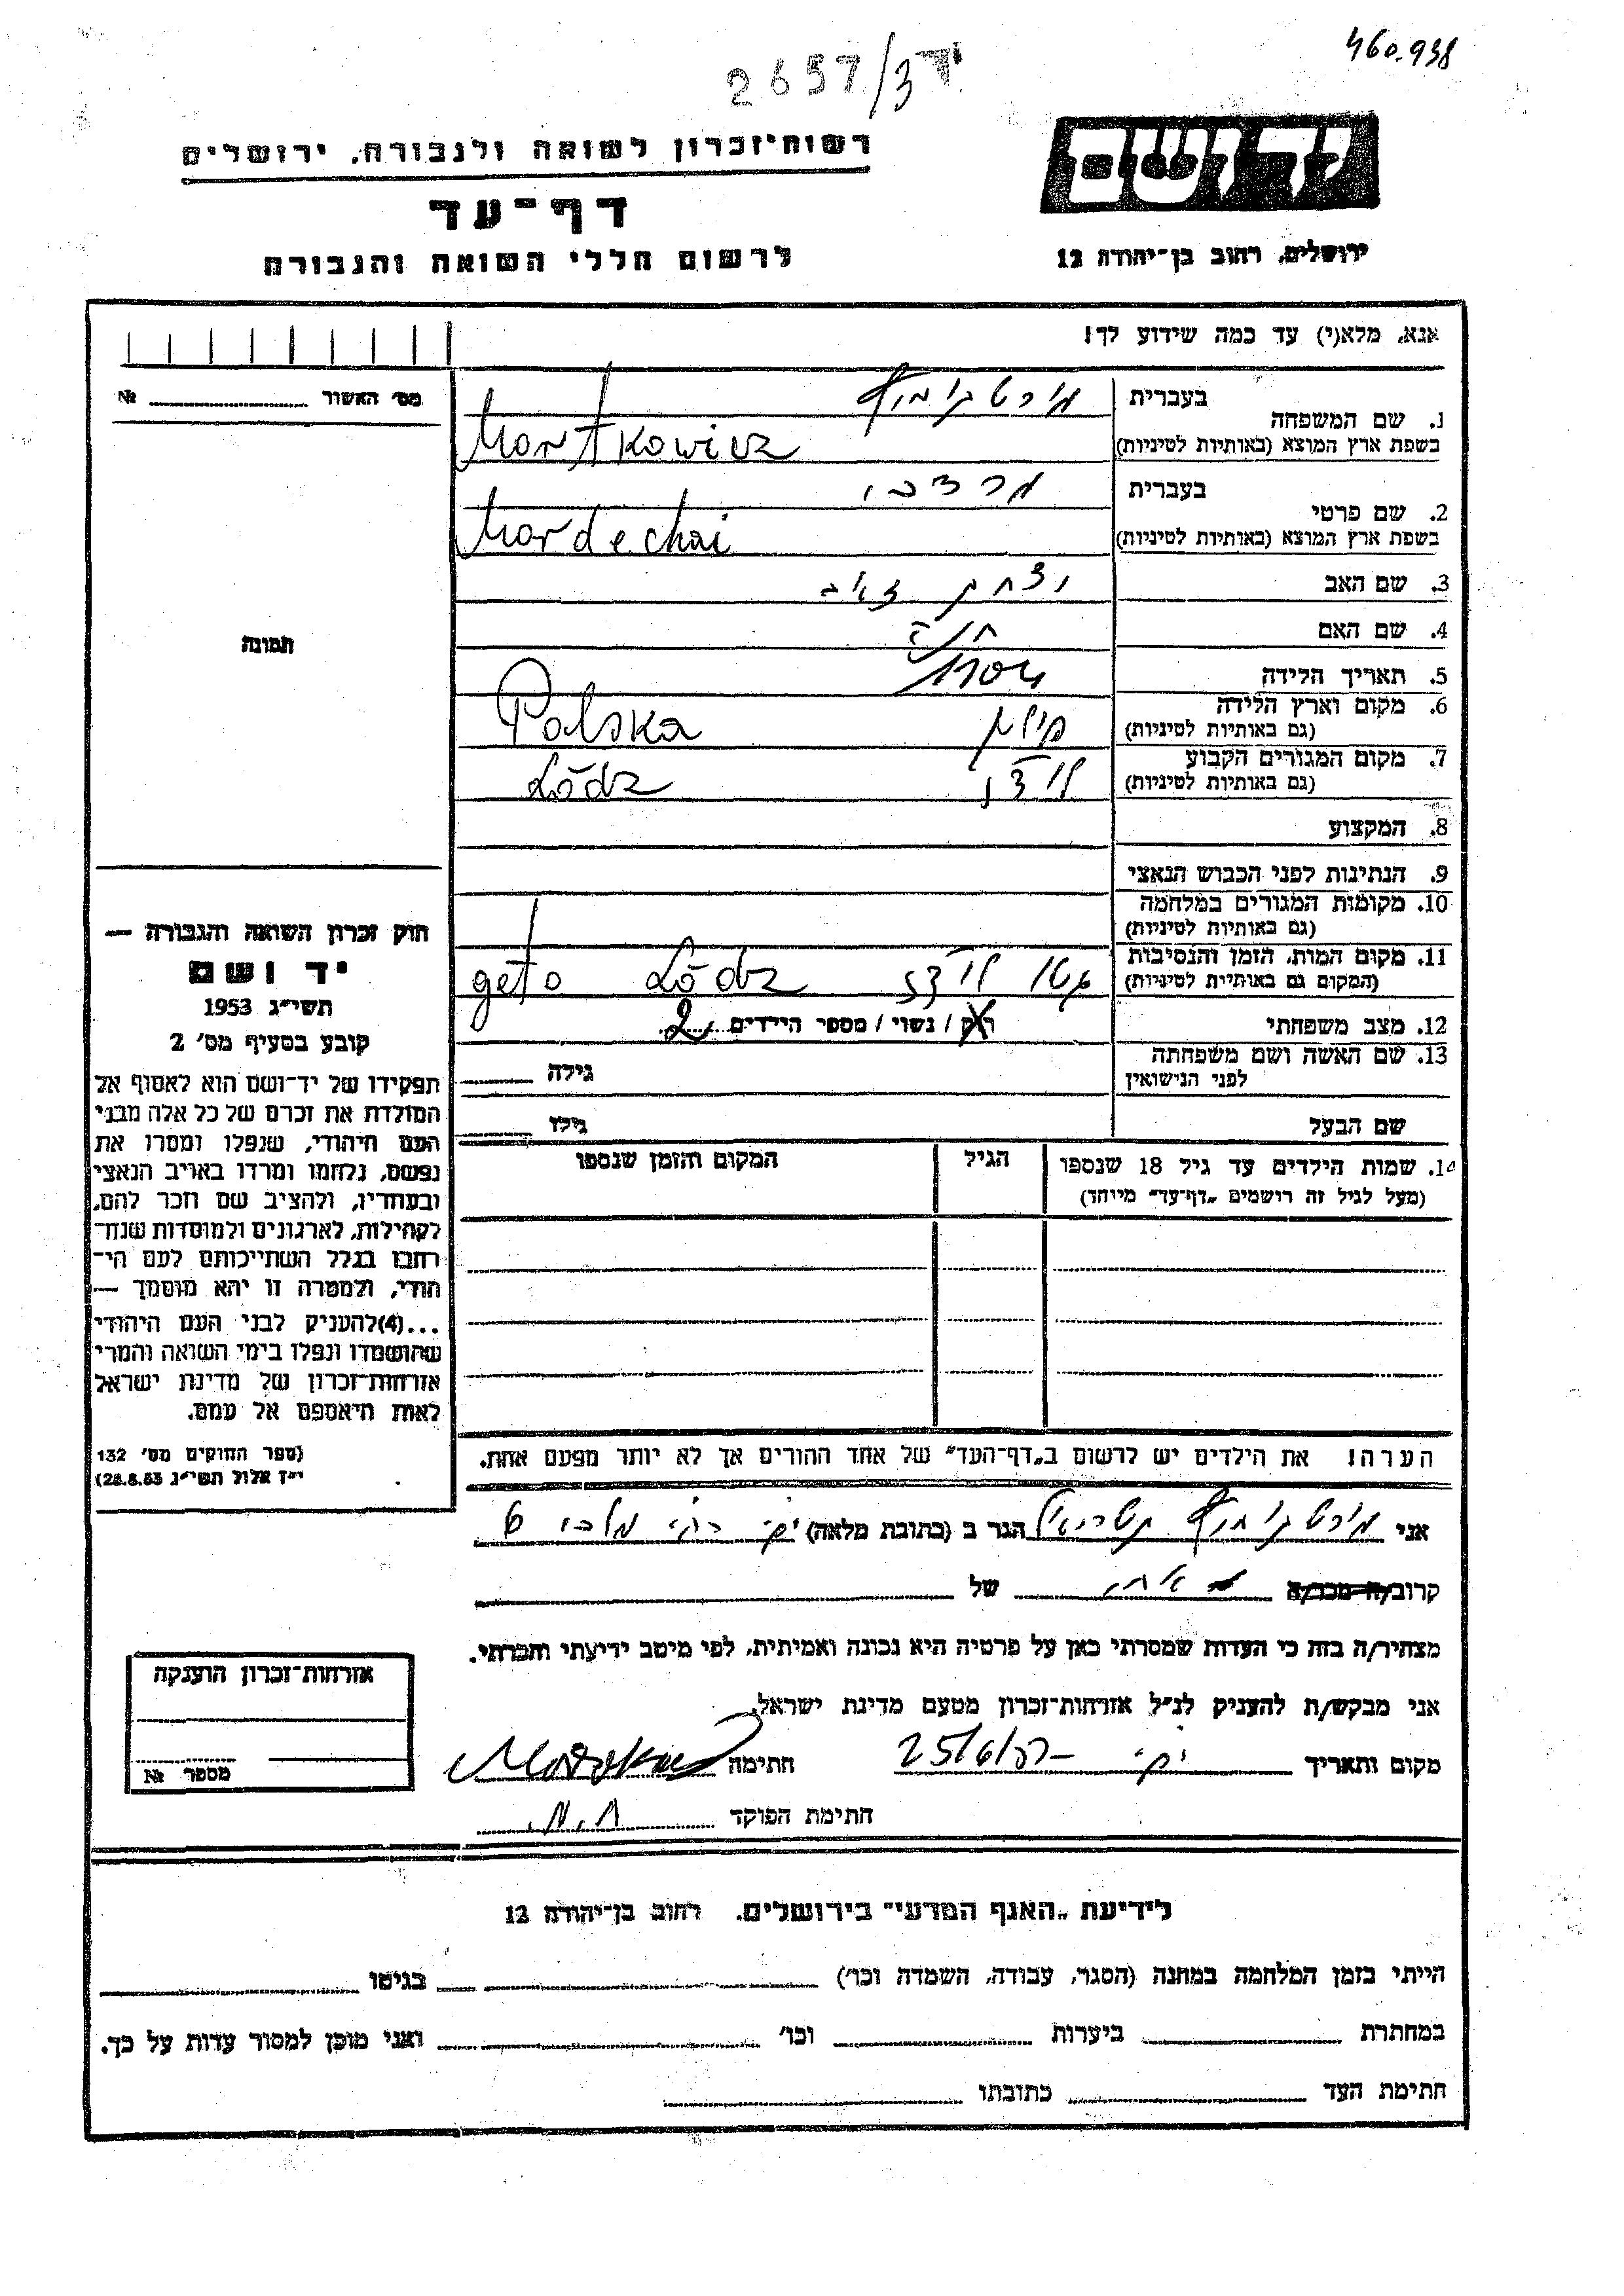 460.938
2657/3 יד
יד ושם
רשות־זכרון לשואה ולגבורה, ירושלים
דף־עד
לרשום חללי השואה והגבורה
ירושלים, רחוב בן־יהודה 12
אנא, מלא(י) עד כמה שידוע לך!
מס' האשור № 
1. שם המשפחה
בעברית מורטקוביץ
בשפת ארץ המוצא (באותיות לטיניות) Mortkowicz
2. שם פרטי
בעברית מרדכי
בשפת ארץ המוצא (באותיות לטיניות) Mordechai
3. שם האב יצחק זאב
4. שם האם חנה
5. תאריך הלידה 1904
6. מקום וארץ הלידה פולין Polska
(גם באותיות לטיניות)
7. מקום המגורים הקבוע לודז' Lódz
(גם באותיות לטיניות)
8. המקצוע
9. הנתינות לפני הכבוש הנאצי
10. מקומות המגורים במלחמה
(גם באותיות לטיניות)
11. מקום המות, הזמן והנסיבות גטו לודז' geto Lódz
(המקום גם באותיות לטיניות)
12. מצב משפחתי רוק / נשוי / מספר הילדים 2
13. שם האשה ושם משפחתה גילה
לפני הנישואין
שם הבעל גילו
14. שמות הילדים עד גיל 18 שנספו הגיל המקום והזמן שנספו
(מעל לגיל זה רושמים "דף־עד" מיוחד)
הערה! את הילדים יש לרשום ב"דף־העד" של אחד ההורים אך לא יותר מפעם אחת.
תמונה
חוק זכרון השואה והגבורה —
יד ושם
תשי"ג 1953
קובע בסעיף מס' 2
תפקידו של יד־ושם הוא לאסוף אל
המולדת את זכרם של כל אלה מבני
העם היהודי, שנפלו ומסרו את
נפשם, נלחמו ומרדו באויב הנאצי
ובעוזריו, ולהציב שם וזכר להם,
לקהילות, לארגונים ולמוסדות שנח־
רבו בגלל השתייכותם לעם הי־
הודי, ולמטרה זו יהא מוסמך —
...(4)להעניק לבני העם היהודי
שהושמדו ונפלו בימי השואה והמרי
אזרחות־זכרון של מדינת ישראל
לאות היאספם אל עמם.
(ספר החוקים מס' 132
י"ז אלול תשי"ג 28.8.53)
אני מורטקוביץ הגר ב (כתובת מלאה) 6
קרוב/ה מכר/ה של
מצהיר/ה בזה כי העדות שמסרתי כאן על פרטיה היא נכונה ואמיתית, לפי מיטב ידיעתי והכרתי.
אני מבקש/ת להעניק לנ"ל אזרחות־זכרון מטעם מדינת ישראל.
מקום ותאריך חתימה
חתימת הפוקד
אזרחות־זכרון הוענקה
מספר №
לידיעת "האגף המדעי" בירושלים, רחוב בן־יהודה 12
הייתי בזמן המלחמה במחנה (הסגר, עבודה, השמדה וכו') בגיטו
במחתרת ביערות וכו' ואני מוכן למסור עדות על כך.
חתימת העד כתובתו